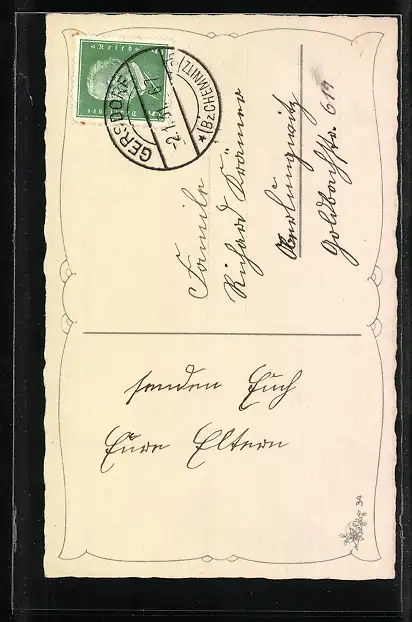 Deutsches Reich
5
GERSDORF
(Bz. CHEMNITZ)
2.1.31
Familie
Richard Krämer
Oberlungwitz
Goldbachstr. 619
senden Euch
Eure Eltern
34